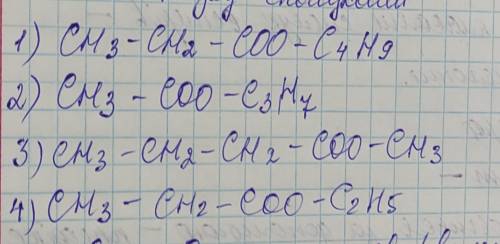 1) CH3-CH2-COO-C4H9
2) CH3-COO-C3H7
3) CH3-CH2-CH2-COO-CH3
4) CH3-CH2-COO-C2H5